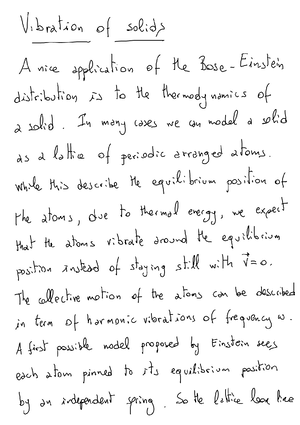 Vibration of solids
A nice application of the Bose-Einstein
distribution is to the thermodynamics of
a solid. In many cases we can model a solid
as a lattice of periodic arranged atoms.
While this describe the equilibrium position of
the atoms, due to thermal energy, we expect
that the atoms vibrate around the equilibrium
position instead of staying still with v⃗=0.
The collective motion of the atoms can be described
in term of harmonic vibrations of frequency ω.
A first possible model proposed by Einstein sees
each atom pinned to its equilibrium position
by an independent spring. So the lattice look like